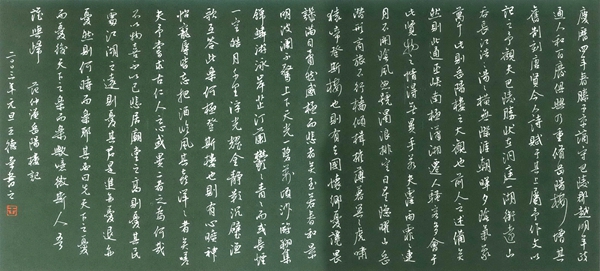 慶曆四年春滕子京謫守巴陵郡越明年政
通人和百廢俱興乃重修岳陽樓增其
舊制刻唐賢今人詩賦于其上屬予作文以
記之予觀夫巴陵勝狀在洞庭一湖銜遠山
吞長江浩浩湯湯橫無際涯朝暉夕陰氣象
萬千此則岳陽樓之大觀也前人之述備矣
然則北通巫峽南極瀟湘遷客騷人多會于
此覽物之情得無異乎若夫淫雨霏霏連
月不開陰風怒號濁浪排空日星隱曜山岳
潛形商旅不行檣傾楫摧薄暮冥冥虎嘯
猿啼登斯樓也則有去國懷鄉憂讒畏
譏滿目蕭然感極而悲者矣至若春和景
明波瀾不驚上下天光一碧萬頃沙鷗翔集
錦鱗游泳岸芷汀蘭鬱鬱青青而或長煙
一空皓月千里浮光耀金靜影沉璧漁
歌互答此樂何極登斯樓也則有心曠神
怡寵辱皆忘把酒臨風其喜洋洋者矣嗟
夫予嘗求古仁人之心或異二者之為何哉
不以物喜不以己悲居廟堂之高則憂其民
處江湖之遠則憂其君是進亦憂退亦
憂然則何時而樂耶其必曰先天下之憂
而憂後天下之樂而樂歟噫微斯人吾
誰與歸 范仲淹岳陽樓記
二〇一三年元旦王德書